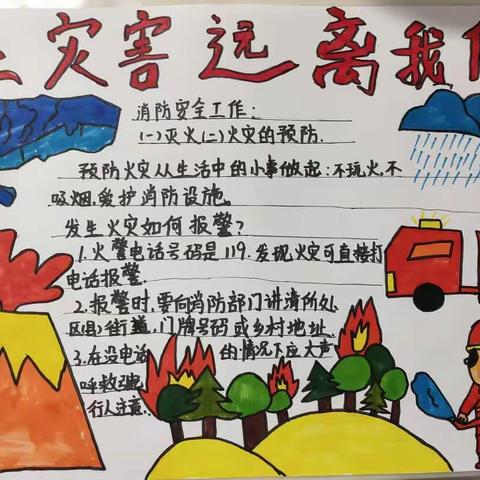 灾害远离我
消防安全工作:
(一)灭火(二)火灾的预防.
预防火灾从生活中的小事做起:不玩火,不
吸烟,爱护消防设施。
发生火灾如何报警?
1.火警电话号码是119.发现火灾可直接打
电话报警.
2.报警时,要向消防部门讲清所处
街道,门牌号码或乡村地址.
3.在没电话的情况下应大声
呼救
行人注意.